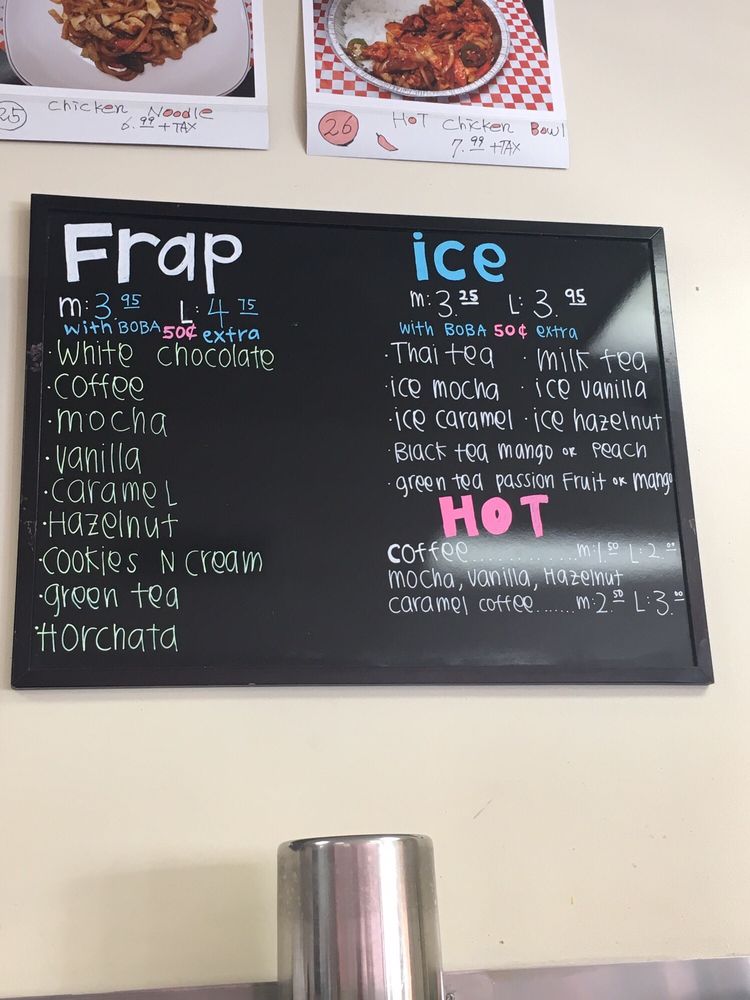 25 chicken Noodle
6.99 + TAX
26 HOT chicken Bowl
7.99 + TAX
Frap
m: 3.95 L: 4.75
with BOBA 50¢ extra
·White chocolate
·coffee
·mocha
·vanilla
·caramel
·Hazelnut
·cookies N cream
·green tea
·Horchata
ice
m: 3.25 L: 3.95
with BOBA 50¢ extra
·Thai tea ·milk tea
·ice mocha ·ice vanilla
·ice caramel ·ice hazelnut
·Black tea mango or Peach
·green tea passion Fruit or mango
HOT
coffee............m:1.50 L:2.00
mocha, vanilla, Hazelnut
caramel coffee.......m:2.50 L:3.00